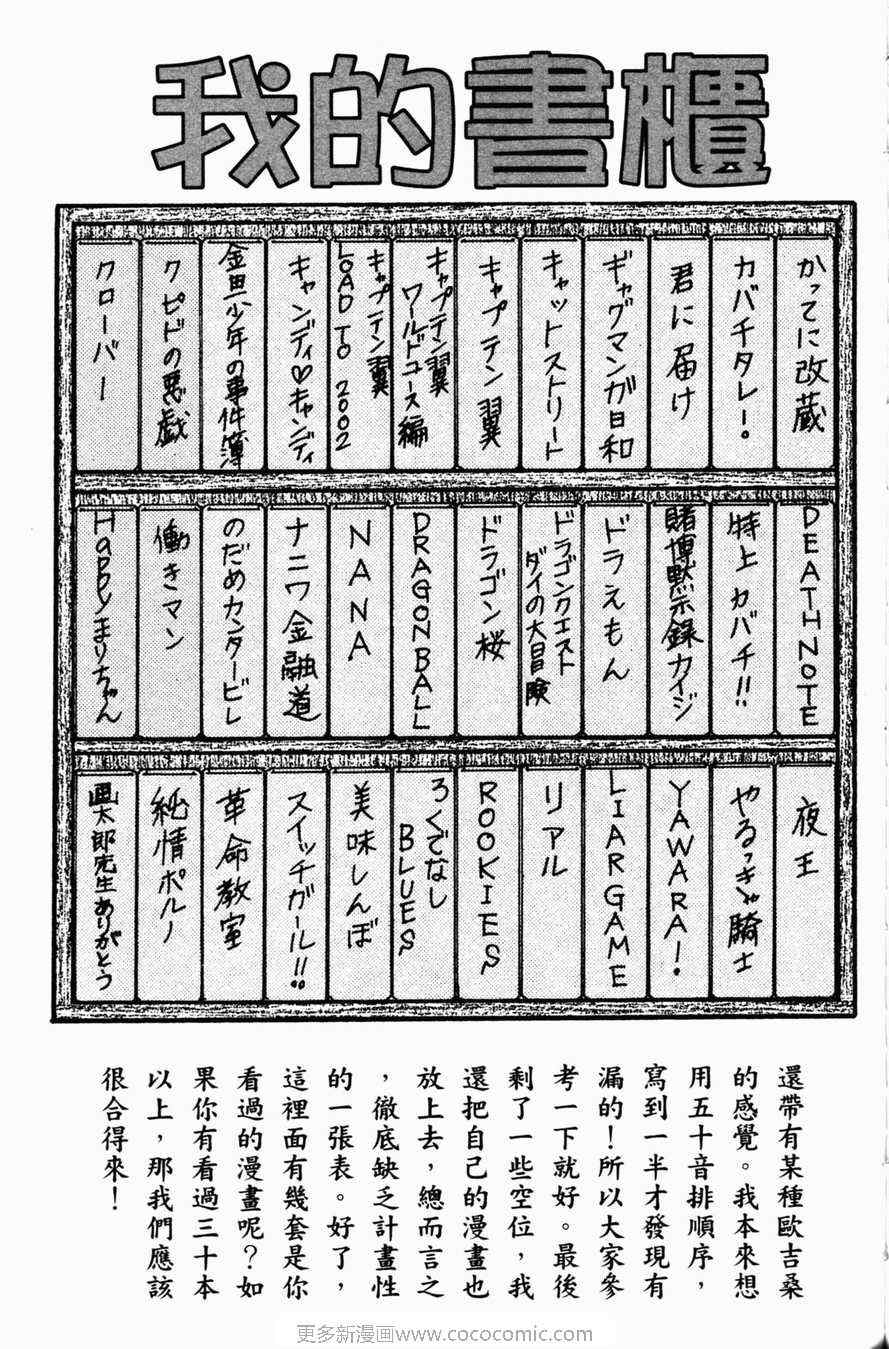 我的書櫃
かってに改蔵
カバチタレ!
君に届け
ギャグマンガ日和
キャットストリート
キャプテン翼
キャプテン翼
ワールドユース編
キャプテン翼
LOAD TO 2002
キャンディ♡キャンディ
金田一少年の事件簿
クピドの悪戯
クローバー
DEATH NOTE
特上カバチ!!
賭博黙示録カイジ
ドラえもん
ドラゴンクエスト
ダイの大冒険
ドラゴン桜
DRAGON BALL
NANA
ナニワ金融道
のだめカンタービレ
働きマン
Happyまりちゃん
夜王
やるっきゃ騎士
YAWARA!
LIAR GAME
リアル
ROOKIES
ろくでなし
BLUES
美味しんぼ
スイッチガール!!
革命教室
純情ポルノ
画太郎先生ありがとう
還帶有某種歐吉桑
的感覺。我本來想
用五十音排順序，
寫到一半才發現有
漏的！所以大家參
考一下就好。最後
剩了一些空位，我
還把自己的漫畫也
放上去，總而言之
，徹底缺乏計畫性
的一張表。好了，
這裡面有幾套是你
看過的漫畫呢？如
果你有看過三十本
以上，那我們應該
很合得來！
更多新漫画www.cococomic.com